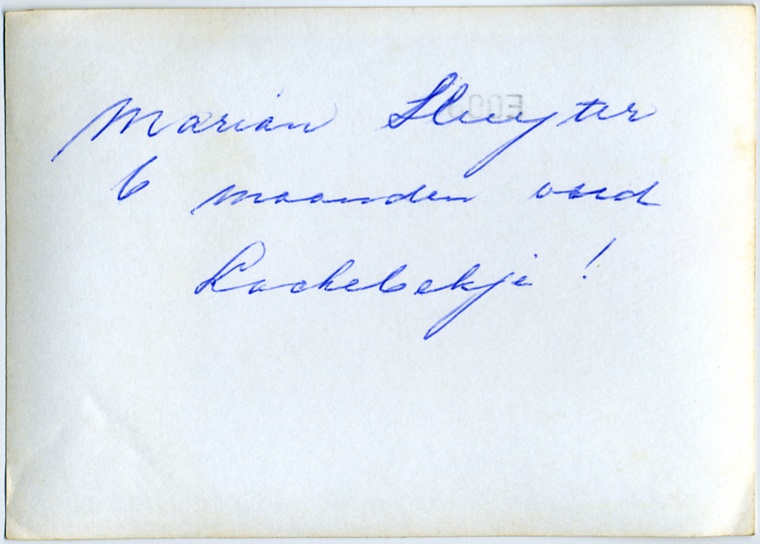 Marian Sluyter
6 maanden oud
Lachebekje!